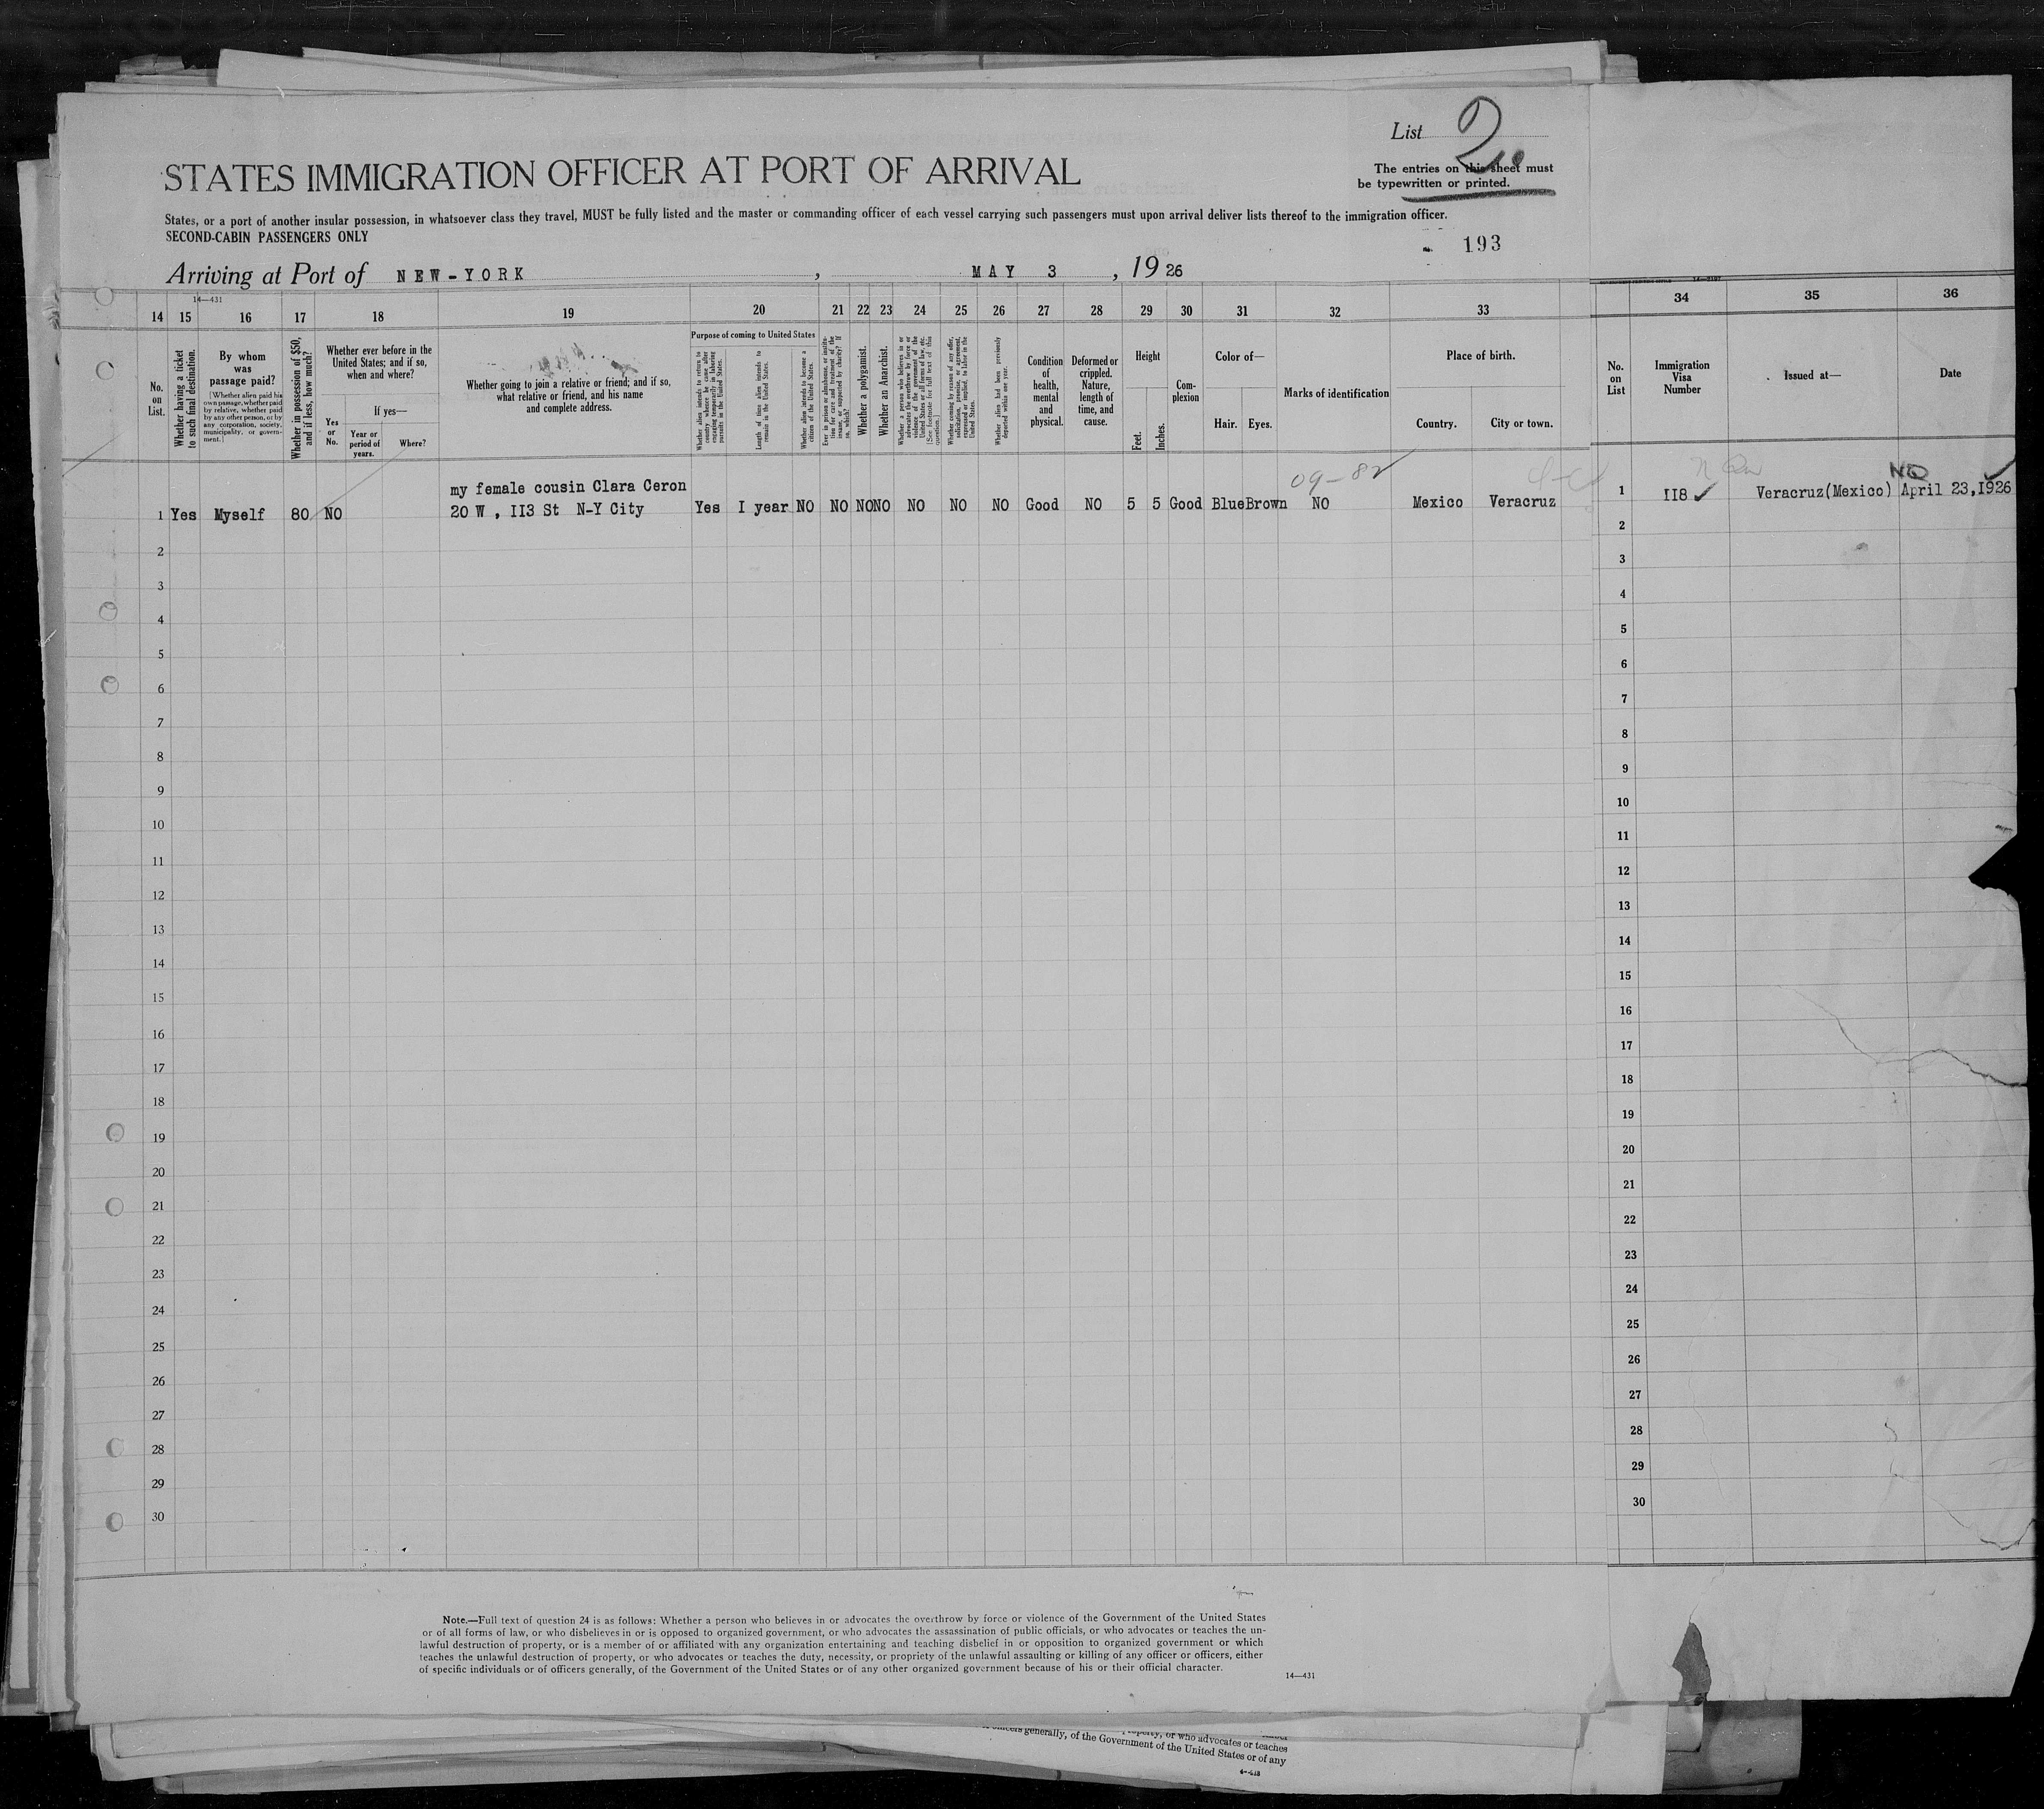 List 2
The entries on this sheet must
be typewritten or printed.
STATES IMMIGRATION OFFICER AT PORT OF ARRIVAL
States, or a port of another insular possession, in whatsoever class they travel, MUST be fully listed and the master or commanding officer of each vessel carrying such passengers must upon arrival deliver lists thereof to the immigration officer.
SECOND-CABIN PASSENGERS ONLY
193
Arriving at Port of NEW-YORK, MAY 3, 1926
14—431
14 15 16 17 18 19 20 21 22 23 24 25 26 27 28 29 30 31 32 33 34 35 36
No. on List.
Whether having a ticket to such final destination.
By whom was passage paid?
[Whether alien paid his own passage, whether paid by relative, whether paid by any other person, or by any corporation, society, municipality, or government.]
Whether in possession of $50, and if less, how much?
Whether ever before in the United States; and if so, when and where?
Yes or No.
If yes—
Year or period of years.
Where?
Whether going to join a relative or friend; and if so, what relative or friend, and his name and complete address.
Purpose of coming to United States
Whether alien intends to return to country whence he came after engaging temporarily in laboring pursuits in the United States.
Length of time alien intends to remain in the United States.
Whether alien intends to become a citizen of the United States.
Ever in prison or almshouse, or institution for care and treatment of the insane, or supported by charity? If so, which?
Whether a polygamist.
Whether an Anarchist.
Whether a person who believes in or advocates the overthrow by force or violence of the government of the United States or all forms of law, etc. [See footnote for full text of this question.]
Whether coming by reason of any offer, solicitation, promise, or agreement, expressed or implied, to labor in the United States.
Whether alien had been previously deported within one year.
Condition of health, mental and physical.
Deformed or crippled. Nature, length of time, and cause.
Height
Feet.
Inches.
Complexion
Color of—
Hair. Eyes.
Marks of identification
Place of birth.
Country. City or town.
No. on List
Immigration Visa Number
Issued at—
Date
09-82
NQ
my female cousin Clara Ceron
1 Yes Myself 80 NO 20 W , II3 St N-Y City Yes I year NO NO NO NO NO NO NO Good NO 5 5 Good Blue Brown NO Mexico Veracruz 1 II8 ✓ Veracruz(Mexico) April 23,1926
2 2
3 3
4 4
5 5
6 6
7 7
8 8
9 9
10 10
11 11
12 12
13 13
14 14
15 15
16 16
17 17
18 18
19 19
20 20
21 21
22 22
23 23
24 24
25 25
26 26
27 27
28 28
29 29
30 30
Note.—Full text of question 24 is as follows: Whether a person who believes in or advocates the overthrow by force or violence of the Government of the United States
or of all forms of law, or who disbelieves in or is opposed to organized government, or who advocates the assassination of public officials, or who advocates or teaches the un-
lawful destruction of property, or is a member of or affiliated with any organization entertaining and teaching disbelief in or opposition to organized government or which
teaches the unlawful destruction of property, or who advocates or teaches the duty, necessity, or propriety of the unlawful assaulting or killing of any officer or officers, either
of specific individuals or of officers generally, of the Government of the United States or of any other organized government because of his or their official character.
14—431
property, or who advocates or teaches
officers generally, of the Government of the United States or of any